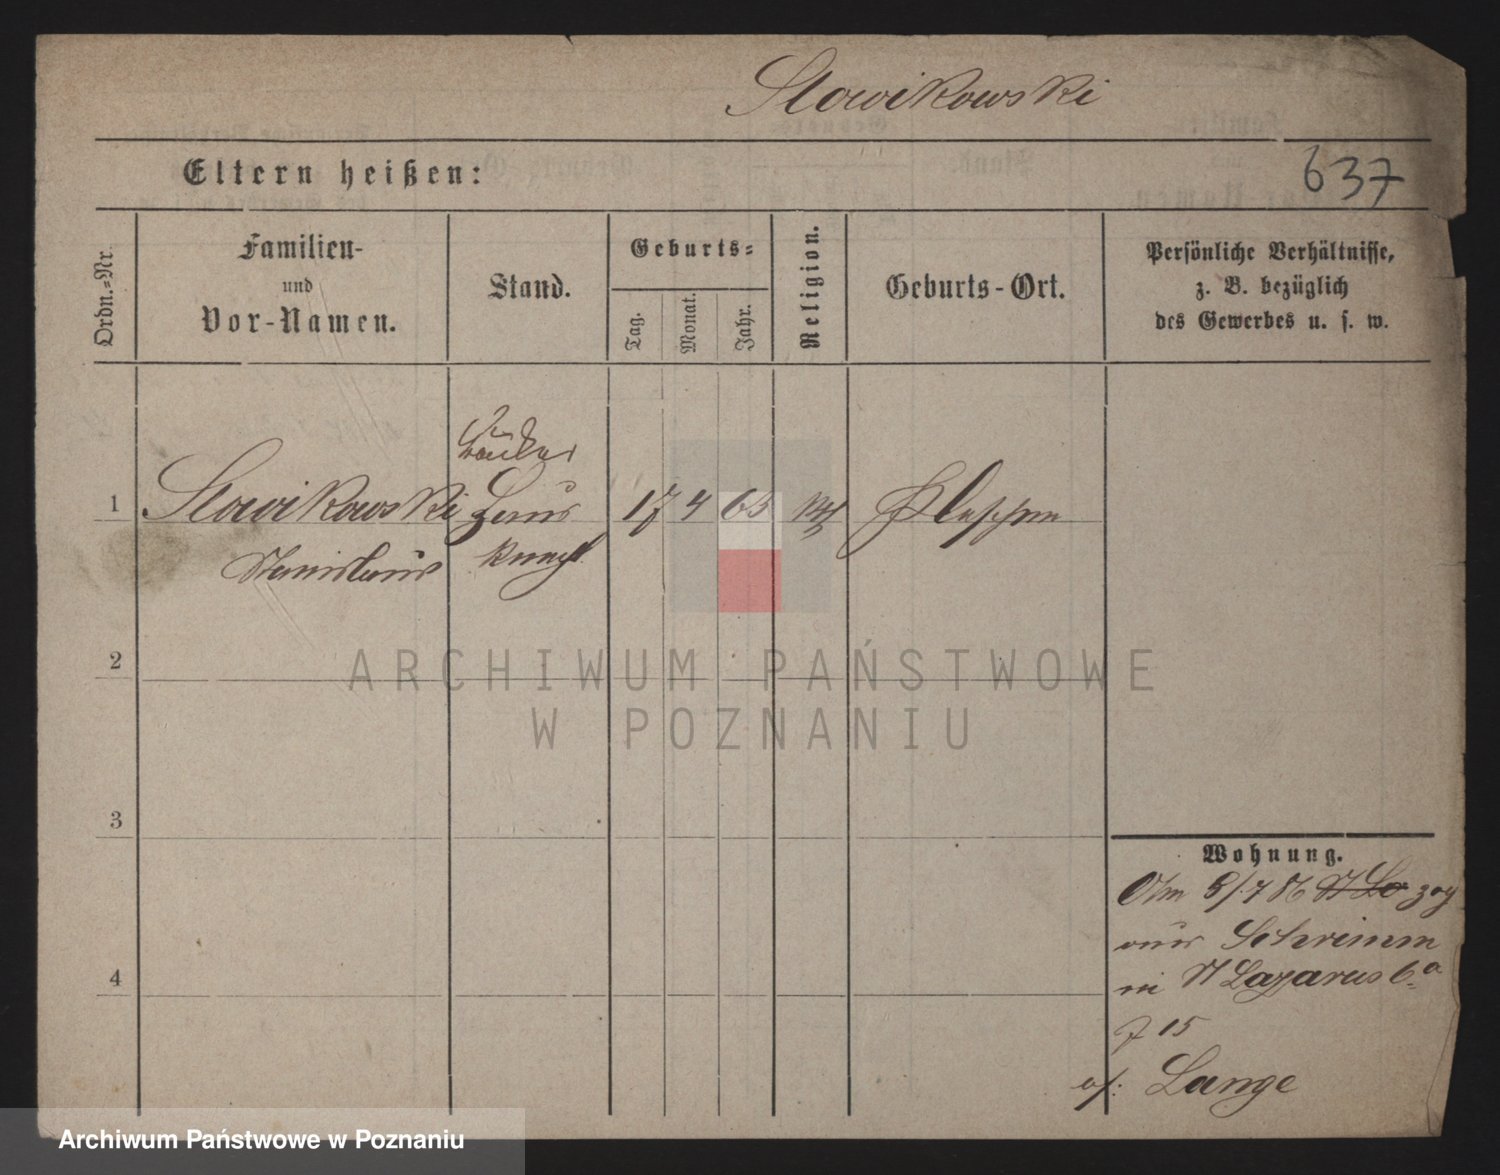 Slowikowski
Eltern heißen:
637
Ordn.=Nr.
Familien-
und
Vor-Namen.
Stand.
Geburts=
Tag.
Monat.
Jahr.
Religion.
Geburts-Ort.
Persönliche Verhältnisse,
z. B. bezüglich
des Gewerbes u. s. w.
1
Slowikowski
Stanislaus
Bäcker
Haus
knecht
17 4 65
Pleschen
2
3
4
ARCHIWUM PAŃSTWOWE
W POZNANIU
Wohnung.
Am 8/7 86 St La zog
aus Schrimm
in St Lazarus 6a
15
Lange
Archiwum Państwowe w Poznaniu